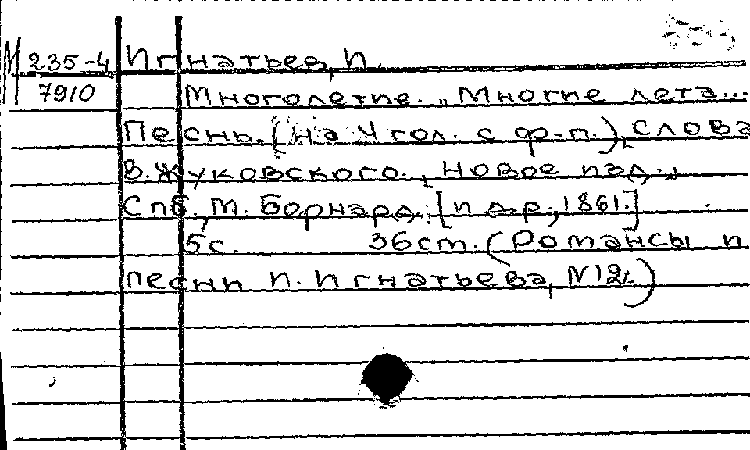 М 235-4 Игнатьев, И.
7910 Многолетие. „Многие лета...
Песнь. [На 4 гол. с ф-п.], слова
В. Жуковского., Новое изд.,
Спб, М. Бернард, [ц.д.р., 1861.]
5с. 36см. (Романсы и
песни И. Игнатьева, N12.)